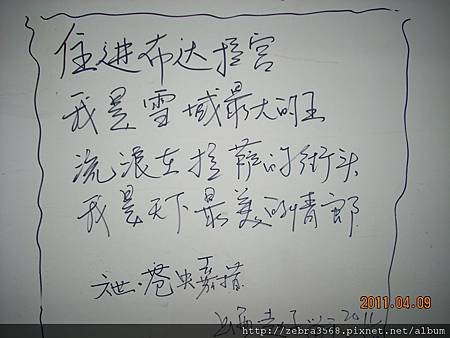 住进布达拉宫
我是雪域最大的王
流浪在拉萨的街头
我是天下最美的情郎
六世·苍央嘉措
2011
2011.04.09
http://zebra3568.pixnet.net/album